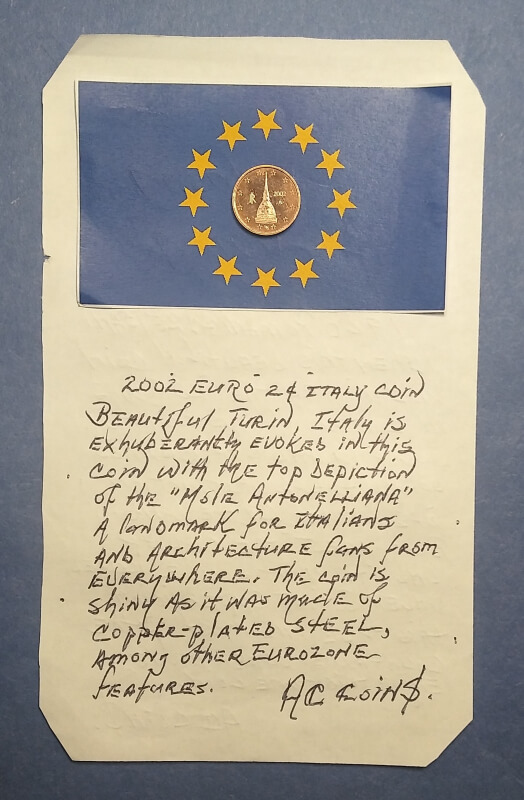 2002
2002 EURO 2¢ ITALY COIN
BEAUTIFUL TURIN, ITALY is
EXHUBERANTLY EVOKED IN this
COIN WITH the top DEPICTION
of the "MOLE ANTONELLIANA"
A LANDMARK for ITALIANS
AND ARCHITECTURE fans from
EVERYWHERE. The COIN is
shiny AS it WAS made of
COPPER-plated STEEL,
AMONG other EUROZONE
features.
AC COIN$.